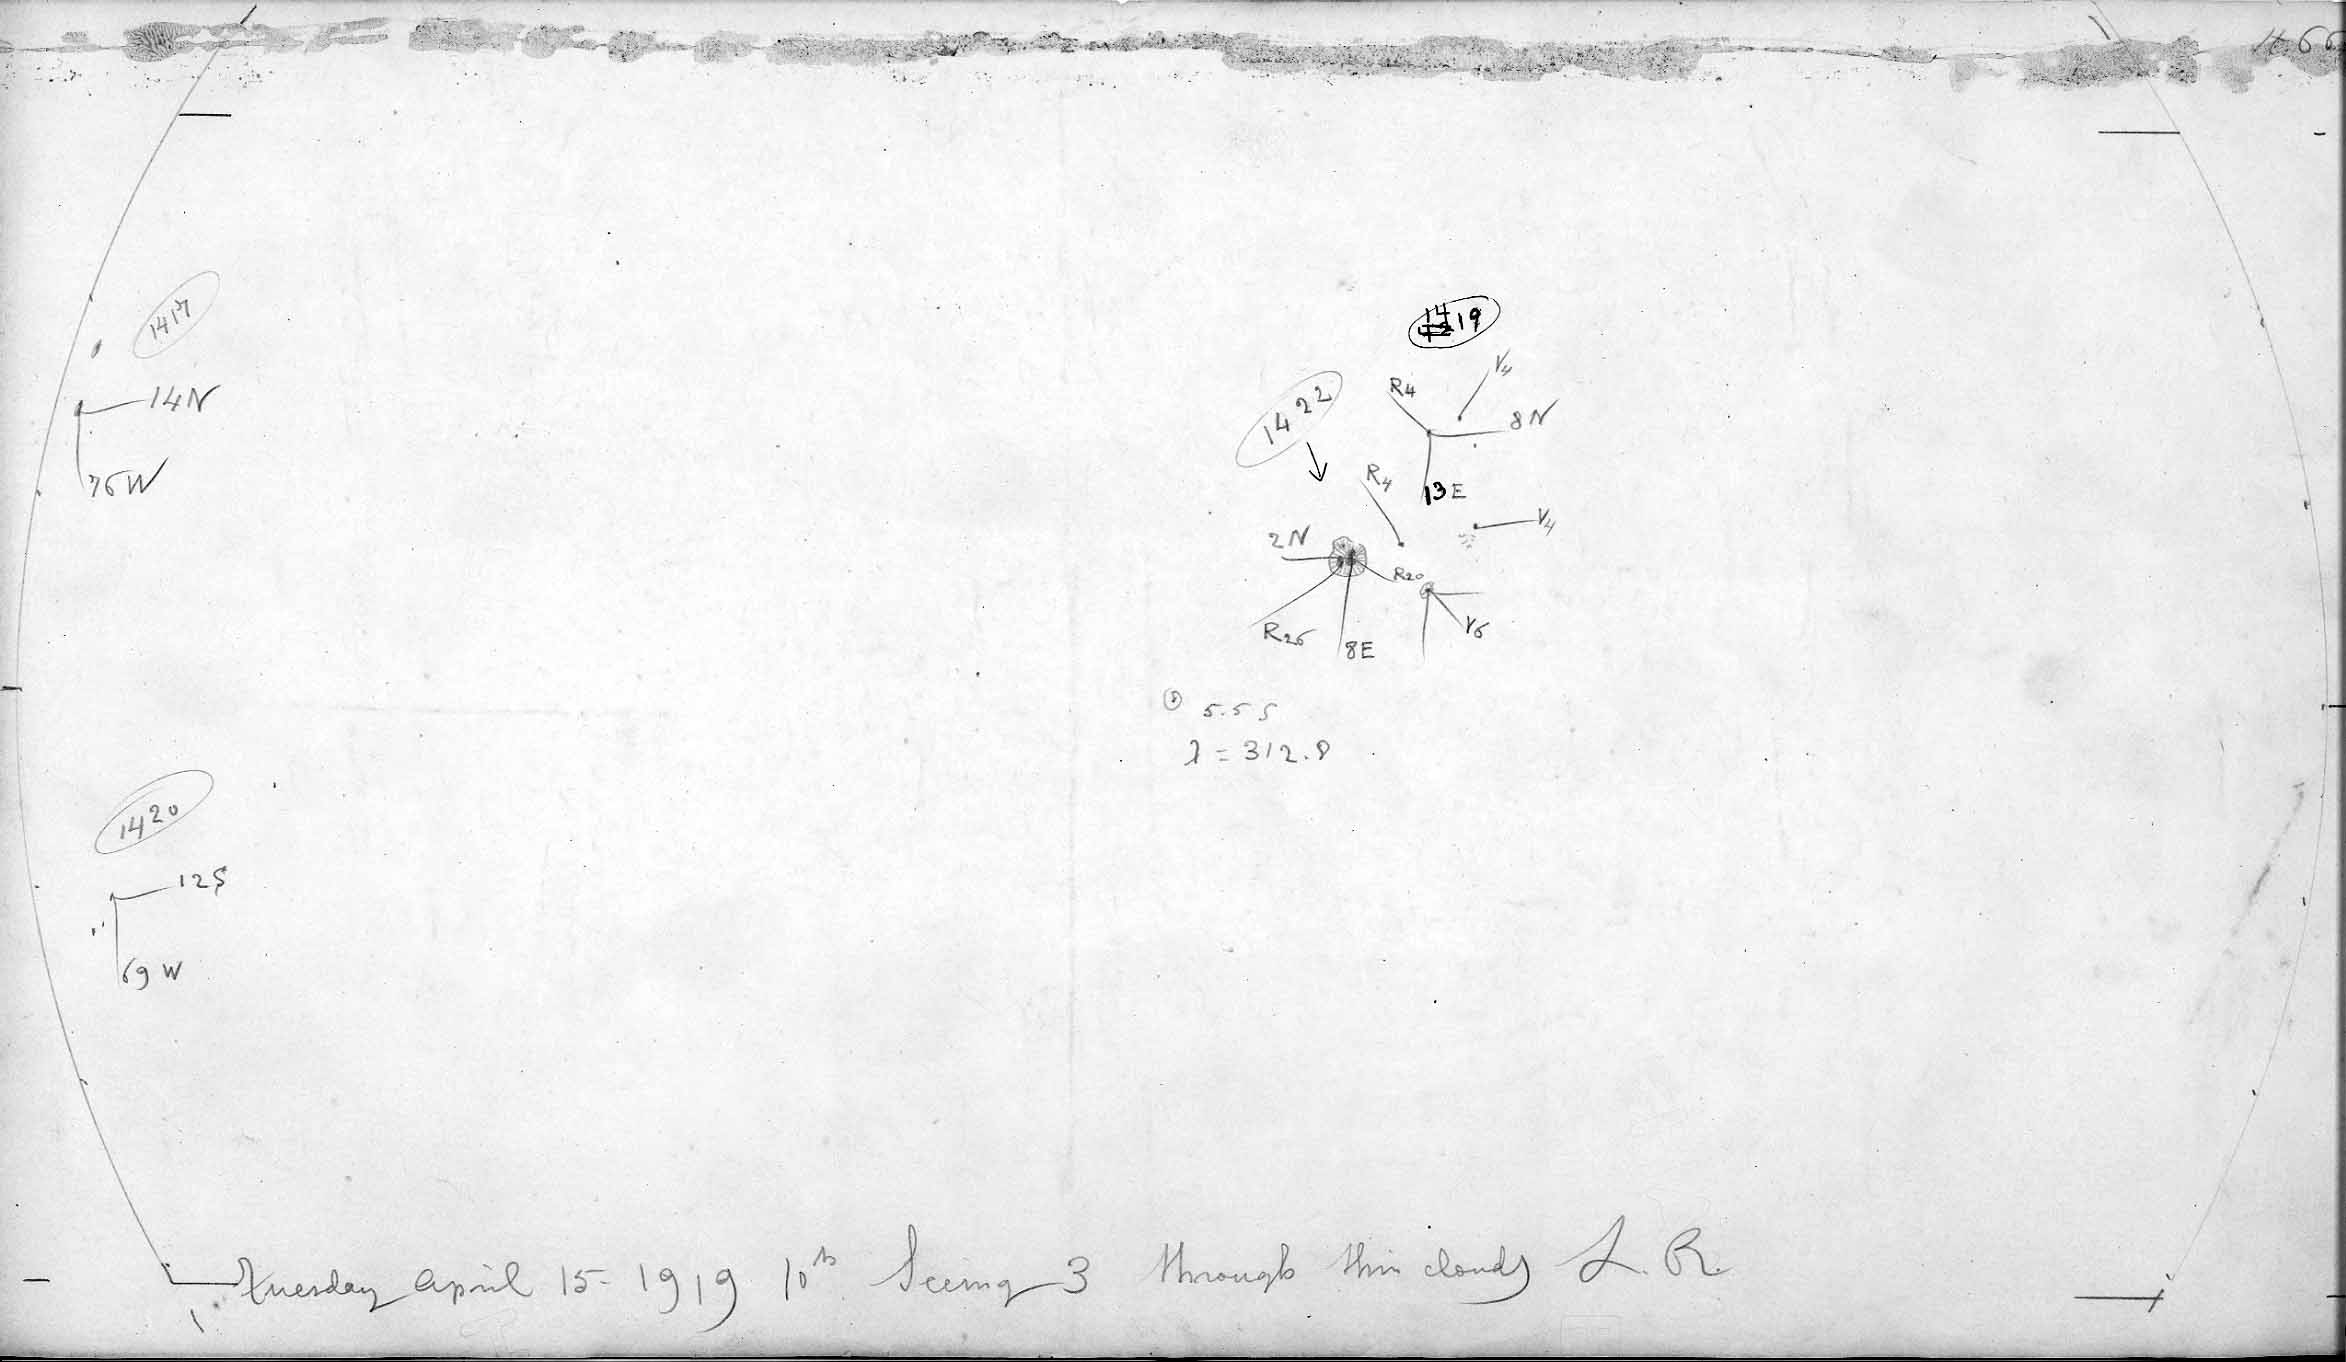 1417
14N
76W
1420
12S
69 W
1419
V4
R4
8N
13E
1422
R4
V4
2N
R20
V6
R26
8E
5.5 S
λ = 312.8
Tuesday April 15- 1919 10h Seeing 3 through thin clouds L. R.